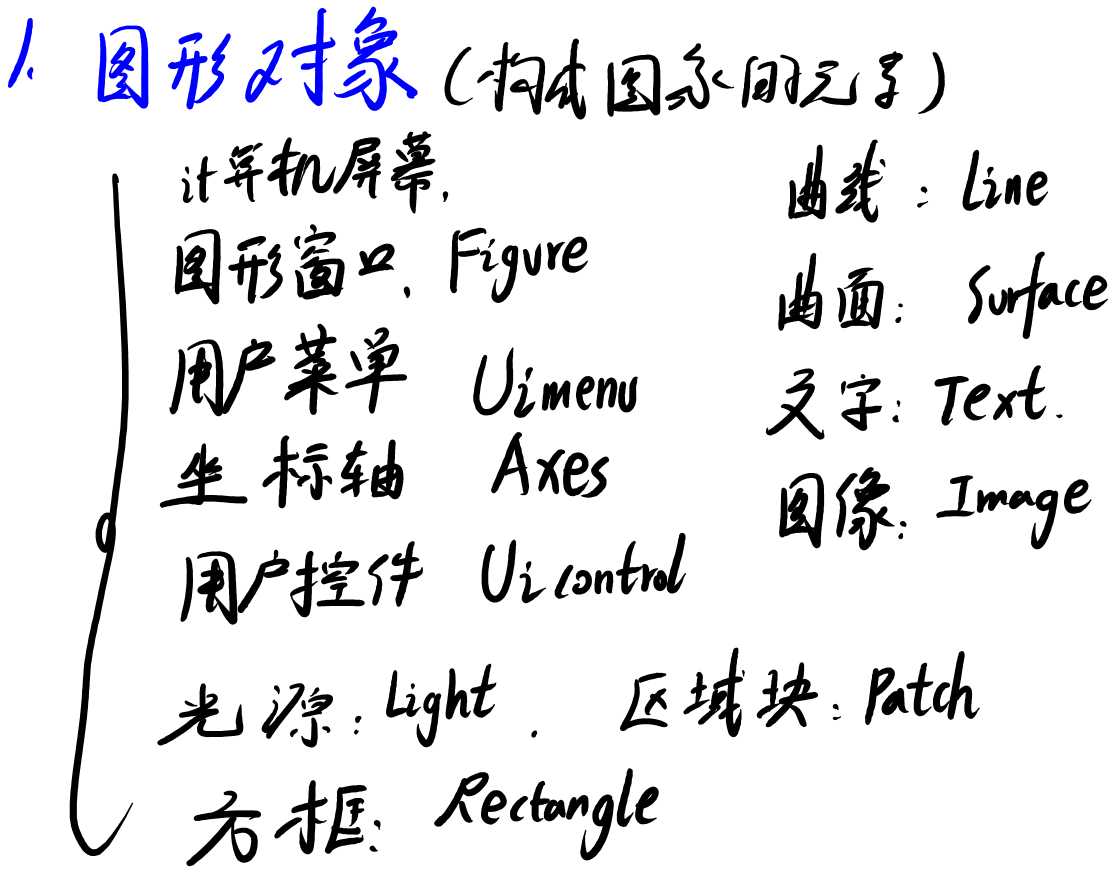 1. 图形对象 (构成图象的元素)
计算机屏幕.
图形窗口. Figure
用户菜单 Uimenu
坐标轴 Axes
用户控件 Uicontrol
光源: Light . 区域块: Patch
方框: Rectangle
曲线: Line
曲面: Surface
文字: Text.
图像: Image